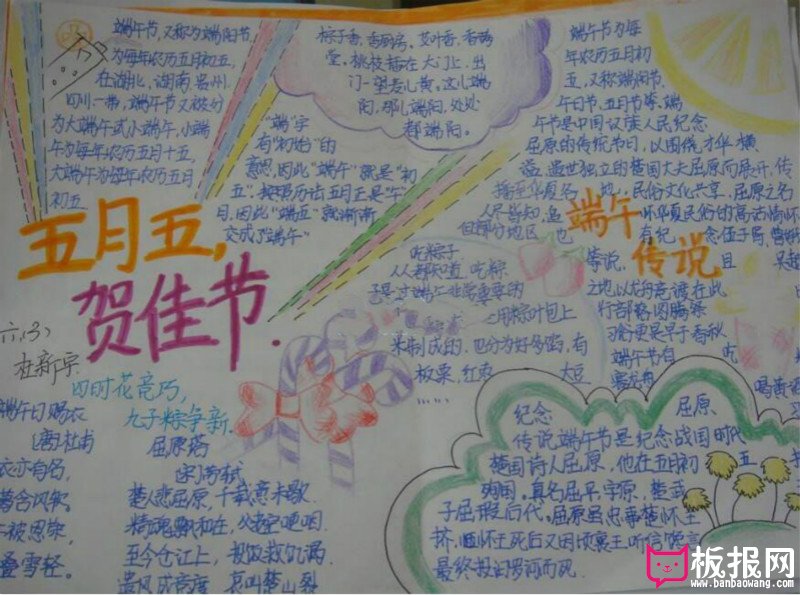 端午节,又称为端阳节,
为每年农历五月初五,
在湖北、湖南、贵州、
四川一带,端午节又被分
为大端午或小端午,小端
午为每年农历五月十五,
大端午为每年农历五月
初五
五月五,
贺佳节.
六(3)
杜新宇
"端"字
有"初始"的
意思,因此"端午"就是"初
五",按照历法五月正是"午"
月,因此"端五"就渐渐
变成了"端午"
粽子香,香厨房,艾叶香,香满
堂,桃枝插在大门上,出
门一望麦儿黄,这儿端
阳,那儿端阳,处处
都端阳。
端午节为每
年农历五月初
五,又称端阳节、
午日节、五月节等,端
午节是中国汉族人民纪念
屈原的传统节日,以围绕才华横
溢、遗世独立的楚国大夫屈原而展开,传
播至华夏各地,民俗文化共享,屈原之名
人尽皆知,追怀华夏民俗的高洁情怀
但部分地区也有纪念伍子胥、曹娥
等说.
端午
传说
之地以龙舟竞渡在此
端午节有
吃粽子
人人都知道,吃粽
子是过端午必需要的
用粽叶包上
米制成的,也分为好多馅,有
板栗,红肉 大豆
……
四时花竞巧,
九子粽争新.
端午日赐衣
(唐)杜甫
衣亦有名,
葛含风软,
午被恩荣,
叠雪轻。
屈原塔
(宋)苏轼
楚人悲屈原,千载意未歇.
精魂飘何在,父老空哽咽.
至今仓江上,投饭救饥渴.
遗风成竞渡,哀叫楚山裂
纪念 屈原、
传说端午节是纪念战国时代
楚国诗人屈原,他在五月初五
殉国。真名屈平,字原,楚武
子屈瑕后代。屈原虽忠事楚怀王
怀王死后又因顷襄王听信馋言
最终投汨罗河而死.
板报网
www.banbaowang.com